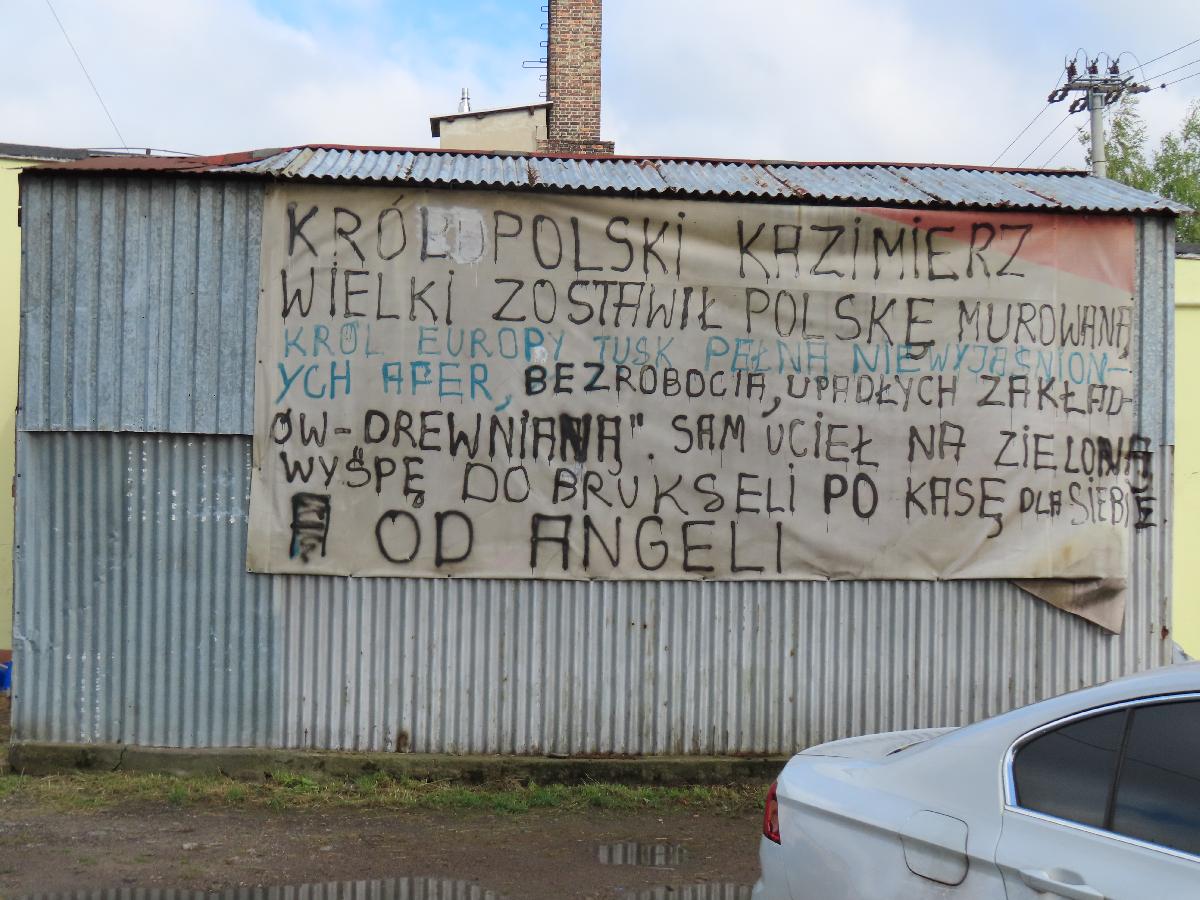 KRÓL POLSKI KAZIMIERZ
WIELKI ZOSTAWIŁ POLSKĘ MUROWANĄ
KRÓL EUROPY TUSK PEŁNĄ NIEWYJAŚNION-
YCH AFER, BEZROBOCIA, UPADŁYCH ZAKŁAD-
ÓW-DREWNIANĄ". SAM UCIEŁ NA ZIELONĄ
WYŚPĘ DO BRUKSELI PO KASĘ DLA SIEBIE
OD ANGELI